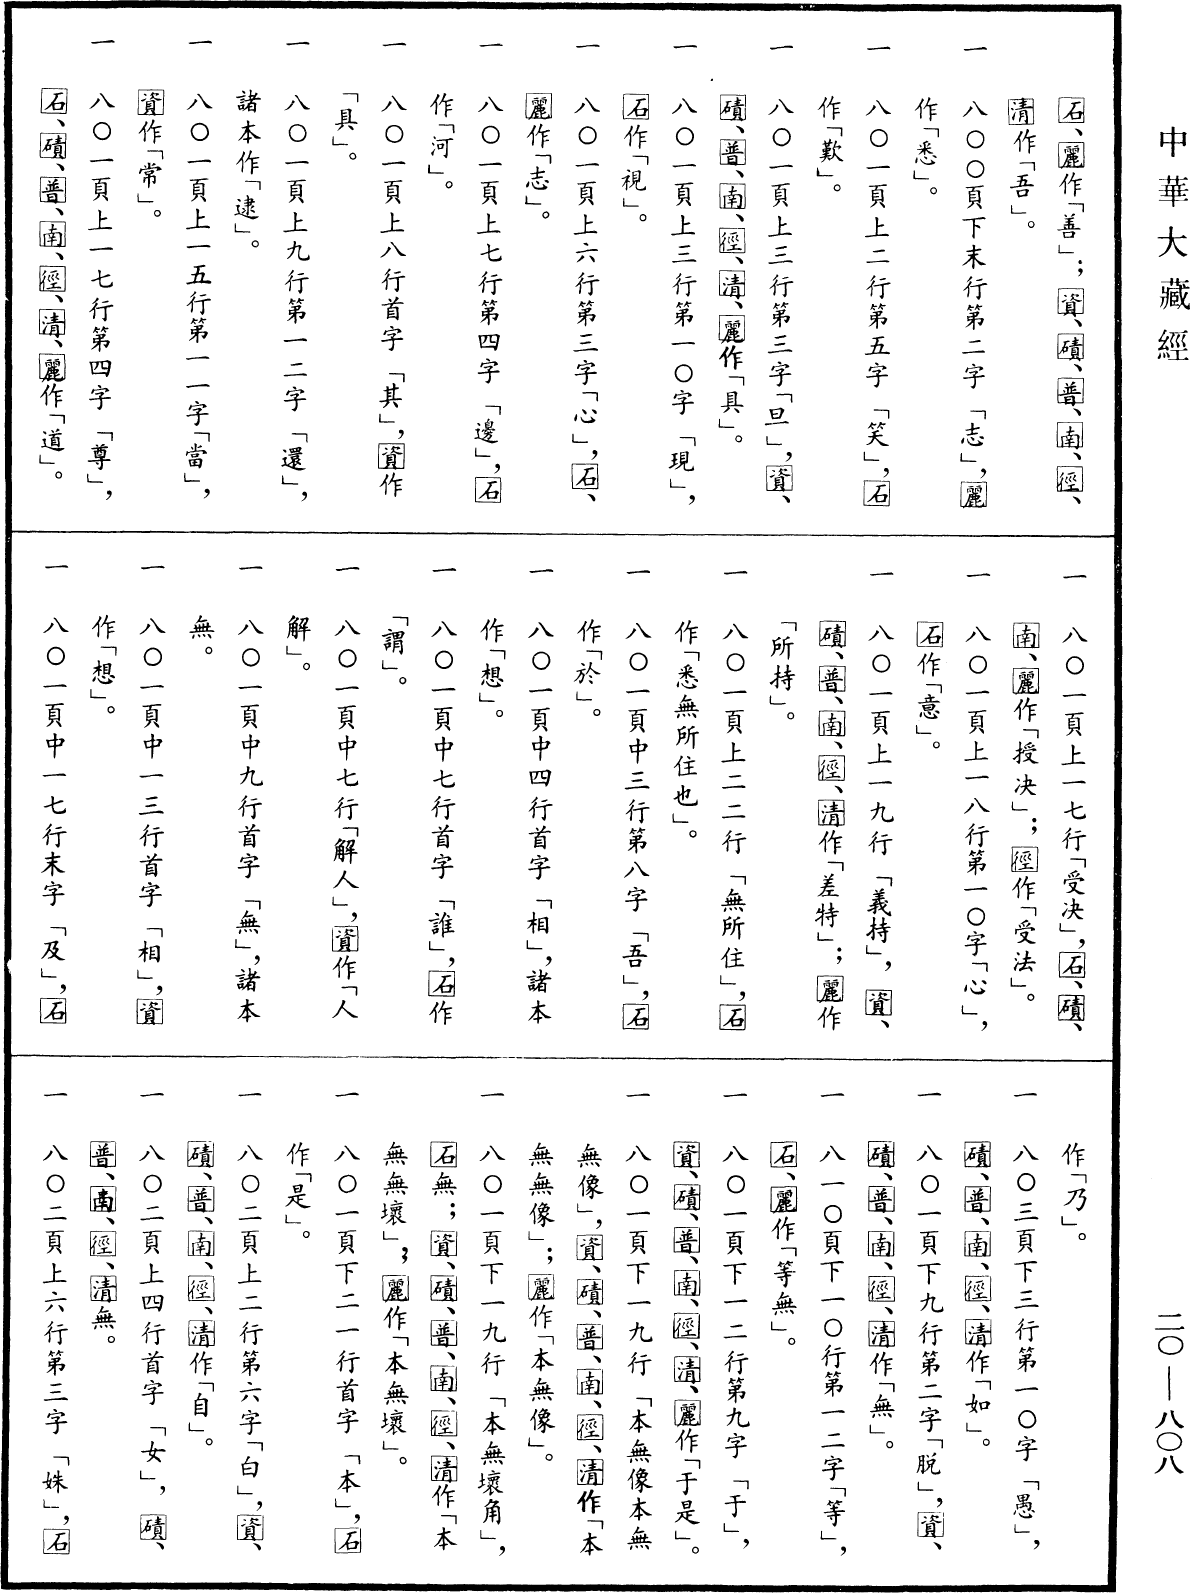 中華大藏經
石、麗作「善」；資、磧、普、南、徑、
清作「吾」。
一 八〇〇頁下末行第二字「志」，麗
作「悉」。
一 八〇一頁上二行第五字「笑」，石
作「歎」。
一 八〇一頁上三行第三字「旦」，資、
磧、普、南、徑、清、麗作「具」。
一 八〇一頁上三行第一〇字「現」，
石作「視」。
一 八〇一頁上六行第三字「心」，石、
麗作「志」。
一 八〇一頁上七行第四字「邊」，石
作「河」。
一 八〇一頁上八行首字「其」，資作
「具」。
一 八〇一頁上九行第一二字「還」，
諸本作「逮」。
一 八〇一頁上一五行第一一字「當」，
資作「常」。
一 八〇一頁上一七行第四字「尊」，
石、磧、普、南、徑、清、麗作「道」。
一 八〇一頁上一七行「受決」，石、磧、
南、麗作「授决」；徑作「受法」。
一 八〇一頁上一八行第一〇字「心」，
石作「意」。
一 八〇一頁上一九行「義持」，資、
磧、普、南、徑、清作「差特」；麗作
「所持」。
一 八〇一頁上二二行「無所住」，石
作「悉無所住也」。
一 八〇一頁中三行第八字「吾」，石
作「於」。
一 八〇一頁中四行首字「相」，諸本
作「想」。
一 八〇一頁中七行首字「誰」，石作
「謂」。
一 八〇一頁中七行「解人」，資作「人
解」。
一 八〇一頁中九行首字「無」，諸本
無。
一 八〇一頁中一三行首字「相」，資
作「想」。
一 八〇一頁中一七行末字「及」，石
作「乃」。
一 八〇三頁下三行第一〇字「愚」，
磧、普、南、徑、清作「如」。
一 八〇一頁下九行第二字「脱」，資、
磧、普、南、徑、清作「無」。
一 八一〇頁下一〇行第一二字「等」，
石、麗作「等無」。
一 八〇一頁下一二行第九字「于」，
資、磧、普、南、徑、清、麗作「于是」。
一 八〇一頁下一九行「本無像本無
無像」，資、磧、普、南、徑、清作「本
無無像」；麗作「本無像」。
一 八〇一頁下一九行「本無壞角」，
石無；資、磧、普、南、徑、清作「本
無無壞」；麗作「本無壞」。
一 八〇一頁下二一行首字「本」，石
作「是」。
一 八〇二頁上二行第六字「白」，資、
磧、普、南、徑、清作「自」。
一 八〇二頁上四行首字「女」，磧、
普、南、徑、清無。
一 八〇二頁上六行第三字「姝」，石
二〇—八〇八